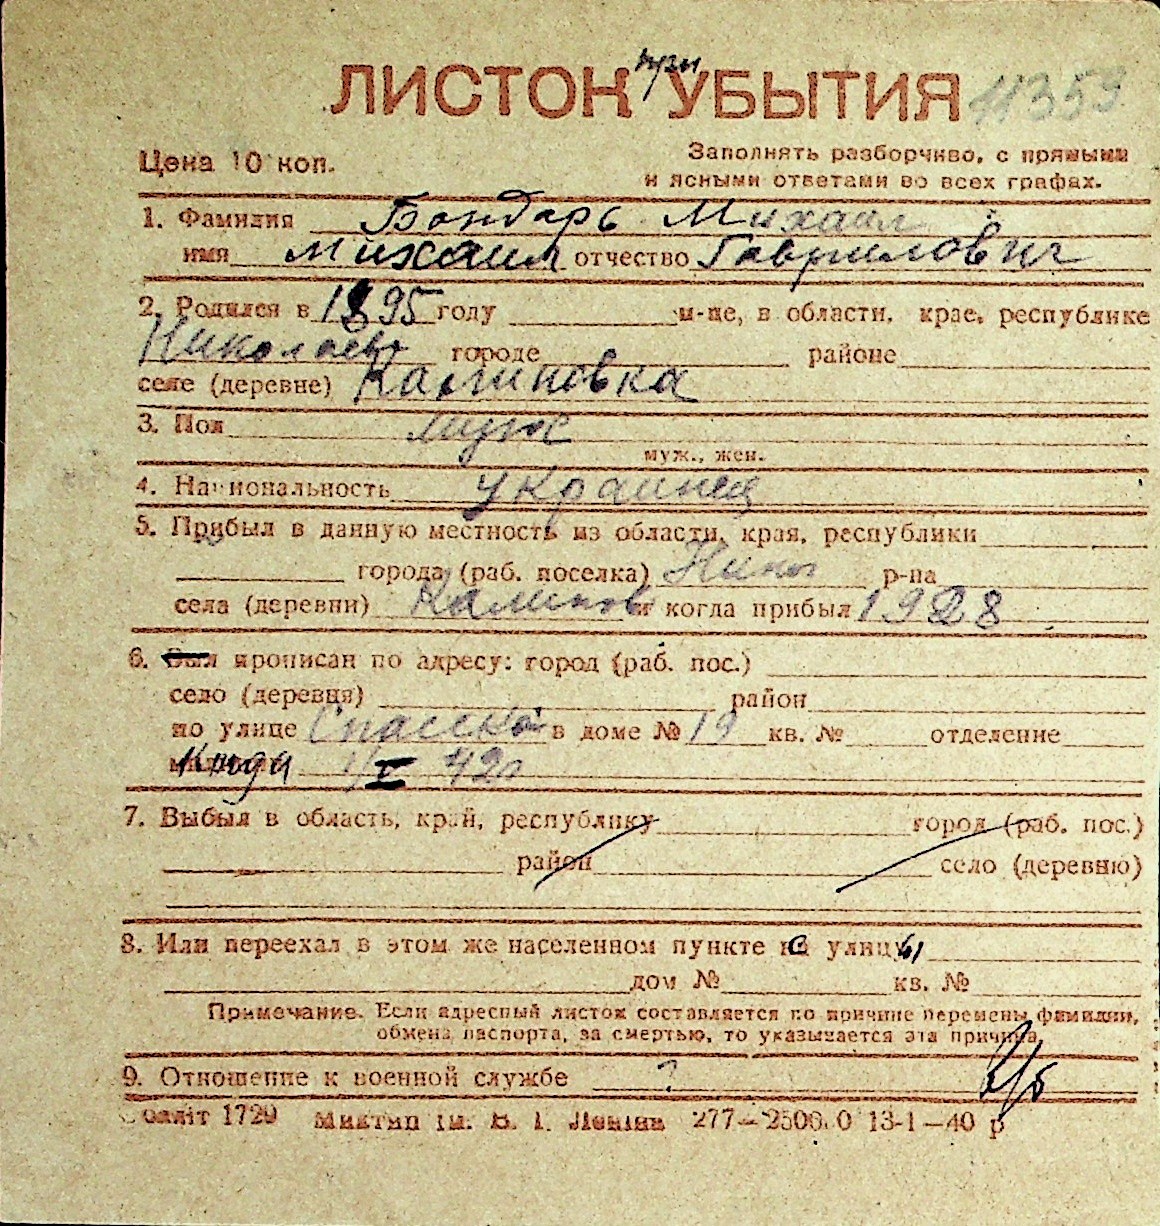 при
ЛИСТОК УБЫТИЯ 11359
Цена 10 коп.
Заполнять разборчиво, с прямыми
и ясными ответами во всех графах.
1. Фамилия Бондарь Михаил
имя Михаил отчество Гаврилович
2. Родился в 1895 году м-це, в области, крае, республике
Николаев городе районе
селе (деревне) Калиновка
3. Пол муж
муж., жен.
4. Национальность украинец
5. Прибыл в данную местность из области, края, республики
города (раб. поселка) Ник р-на
села (деревни) Калинов и когда прибыл 1928
6. Был прописан по адресу: город (раб. пос.)
село (деревня) район
по улице Спасской в доме № 19 кв. № отделение
Когда 1/V 42г
7. Выбыл в область, край, республику город (раб. пос.)
район село (деревню)
8. Или переехал в этом же населенном пункте с улицы
дом № кв. №
Примечание. Если адресный листок составляется по причине перемены фамилии,
обмена паспорта, за смертью, то указывается эта причина.
9. Отношение к военной службе ?
Облліт 1729 Миктип ім. В. І. Леніна 277—2500.0 13-1—40 р